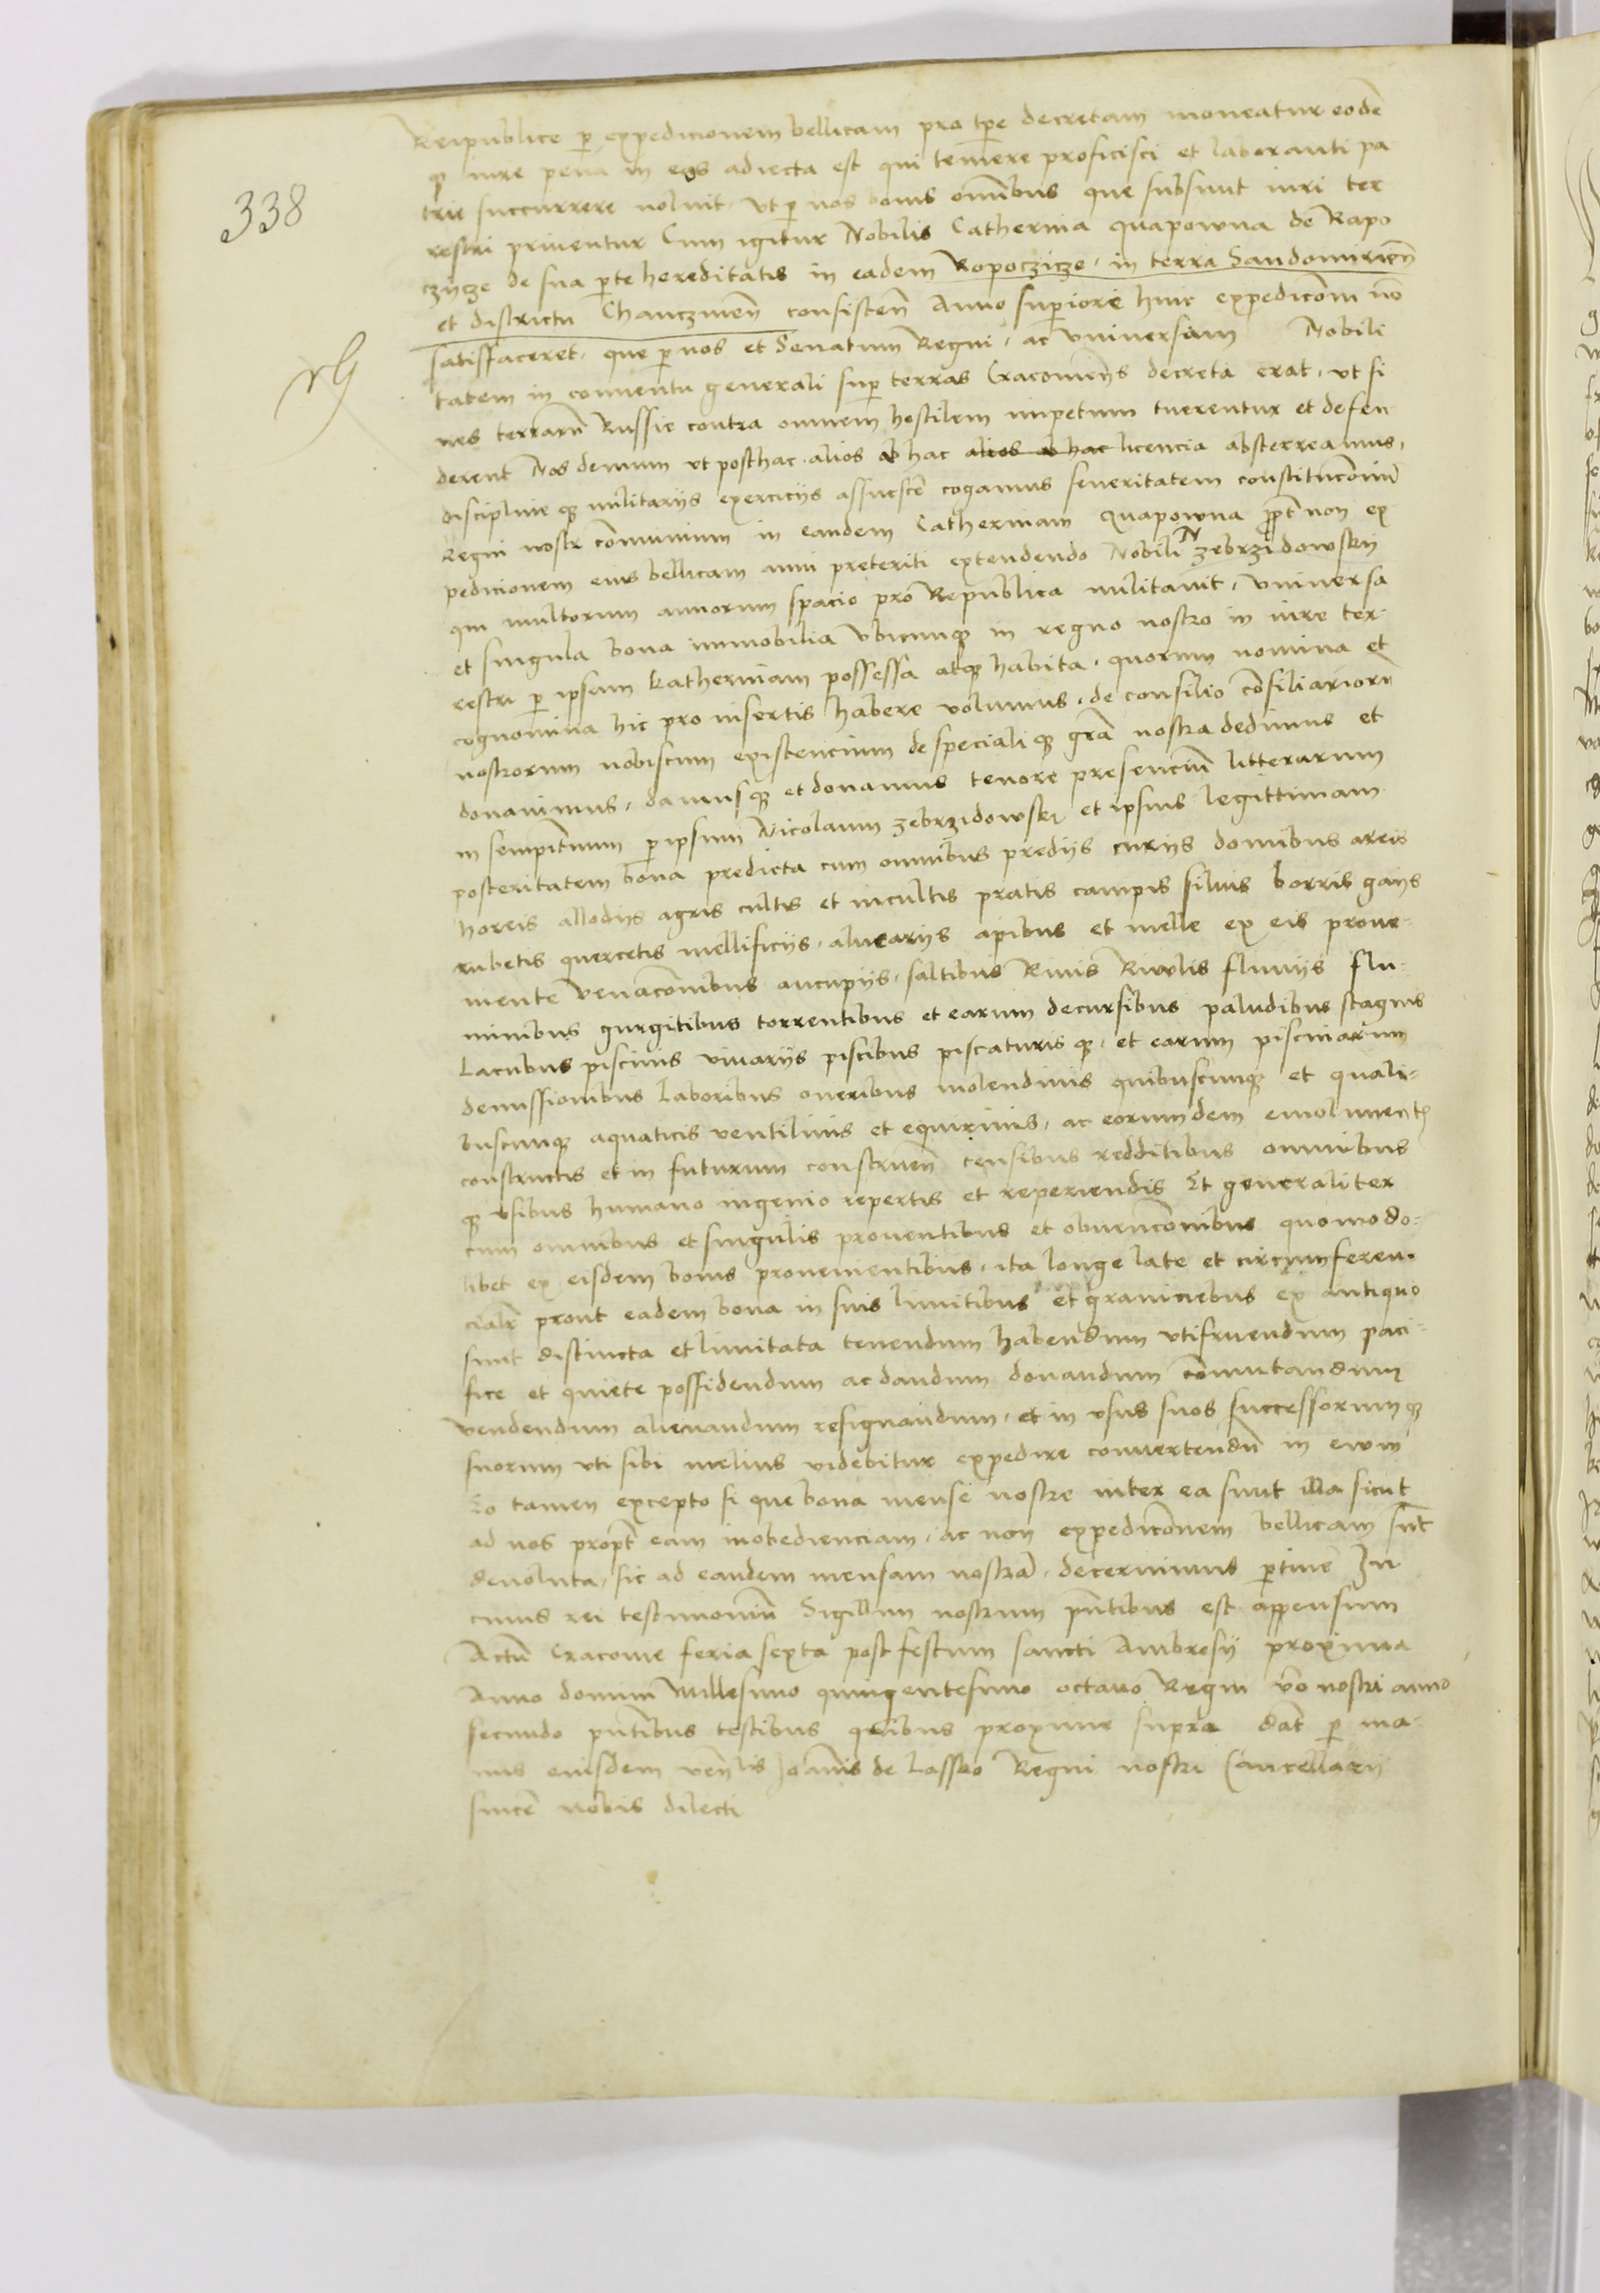 338
Reipublice p expedicionem bellicam pro tpe decretam moneatur eodē
q iure pena in eos adiecta est qui temere proficisci et laboranti pa
trie succurrere noluit, vt p nos bonis omībus que subsunt iuri ter
restri priventur Cum igitur Nobilis Catherina Quapowna de Rapo
czycze de sua pte hereditatis in eadem Ropoczicze, in terra Sandomirien̄
et districtu Chanczinen̄ consisten̄ Anno superiore huic expedicōni nō
satisfaceret, que p nos et Senatum Regni, ac vniversam Nobili
tatem in conventu generali sup terras Cracovien̄s decreta erat, vt fi
nes terrarū Russie contra omnem hostilem impetum tuerentur et defen
derent Nos demum vt posthac alios ab hac alios ab hac licencia absterreamus,
discipline q militarijs exercicijs assuescē cogamus severitatem constitucōnū
Regni nostr cōmunium in eandem Catherinam Quapowna ppt non ex
pedicionem eius bellicam anni preteriti extendendo Nobili N Zebrzidowskij
qui multorum annorum spacio pro Republica militavit, vniversa
et singula bona immobilia vbicunq in regno nostro in iure ter-
restri p ipsam Katherinam possessa atq habita, quorum nomina et
cognomina hic pro insertis habere volumus, de consilio cōsiliariorū
nostrorum nobiscum existencium de speciali q grā nostra dedimus et
donavimus, damusq et donamus tenore presenciū litterarum
in sempiternum p ipsum Nicolaum Zebrzidowski et ipsius legittimam
posteritatem bona predicta cum omnibus predijs curijs domibus areis
horeis allodijs agris cultis et incultis pratis campis silvis borris gays
rubetis quercetis mellificijs, alvearijs apibus et melle ex eis prove-
niente venacōnibus aucupijs, saltibus Rivis Rivvlis fluvijs flu-
minibus gurgitibus torrentibus et earum decursibus paludibus stagnis
Lacubus piscinis vivarijs piscibus piscaturis q, et earum piscinarum
demissionibus Laboribus oneribus molendinis quibuscunq et quali-
buscunq aquaticis ventilinis et equirinis, ac eorumdem emolument
constructis et in futurum construen̄ censibus redditibus omnibus
q vsibus humano ingenio repertis et reperiendis Et generaliter
cum omnibus et singulis proventibus et obvencōnibus quomodo-
libet ex eisdem bonis provenientibus, ita longe late et circumferen-
cialr prout eadem bona in suis limitibus et graniciebus ex antiquo
sunt distincta et limitata tenendum habendum vtifruendum paci-
fice et quiete possidendum ac dandum donandum cōmutandum
vendendum alienandum resignandum, et in vsus suos successorum q
suorum vti sibi melius videbitur expedire convertendū in ewm
Eo tamen excepto si que bona mense nostre inter ea sunt illa sicut
ad nos propt eam inobedienciam, ac non expedicōnem bellicam sūt
devoluta, sic ad eandem mensam nostrā, decernimus ptinē In
cuius rei testimoniū Sigillum nostrum pn̄tibus est appensum
Actū Cracovie feria sexta post festum sancti Ambrosij proxima
Anno domini Millesimo quingentesimo octavo Regni vō nostri anno
secundo pn̄tibus testibus quibus proxime supra dat p ma-
nus eiusdem ven̄lis Joānis de Lassko Regni nostri Cancellarij
sincē nobis dilecti